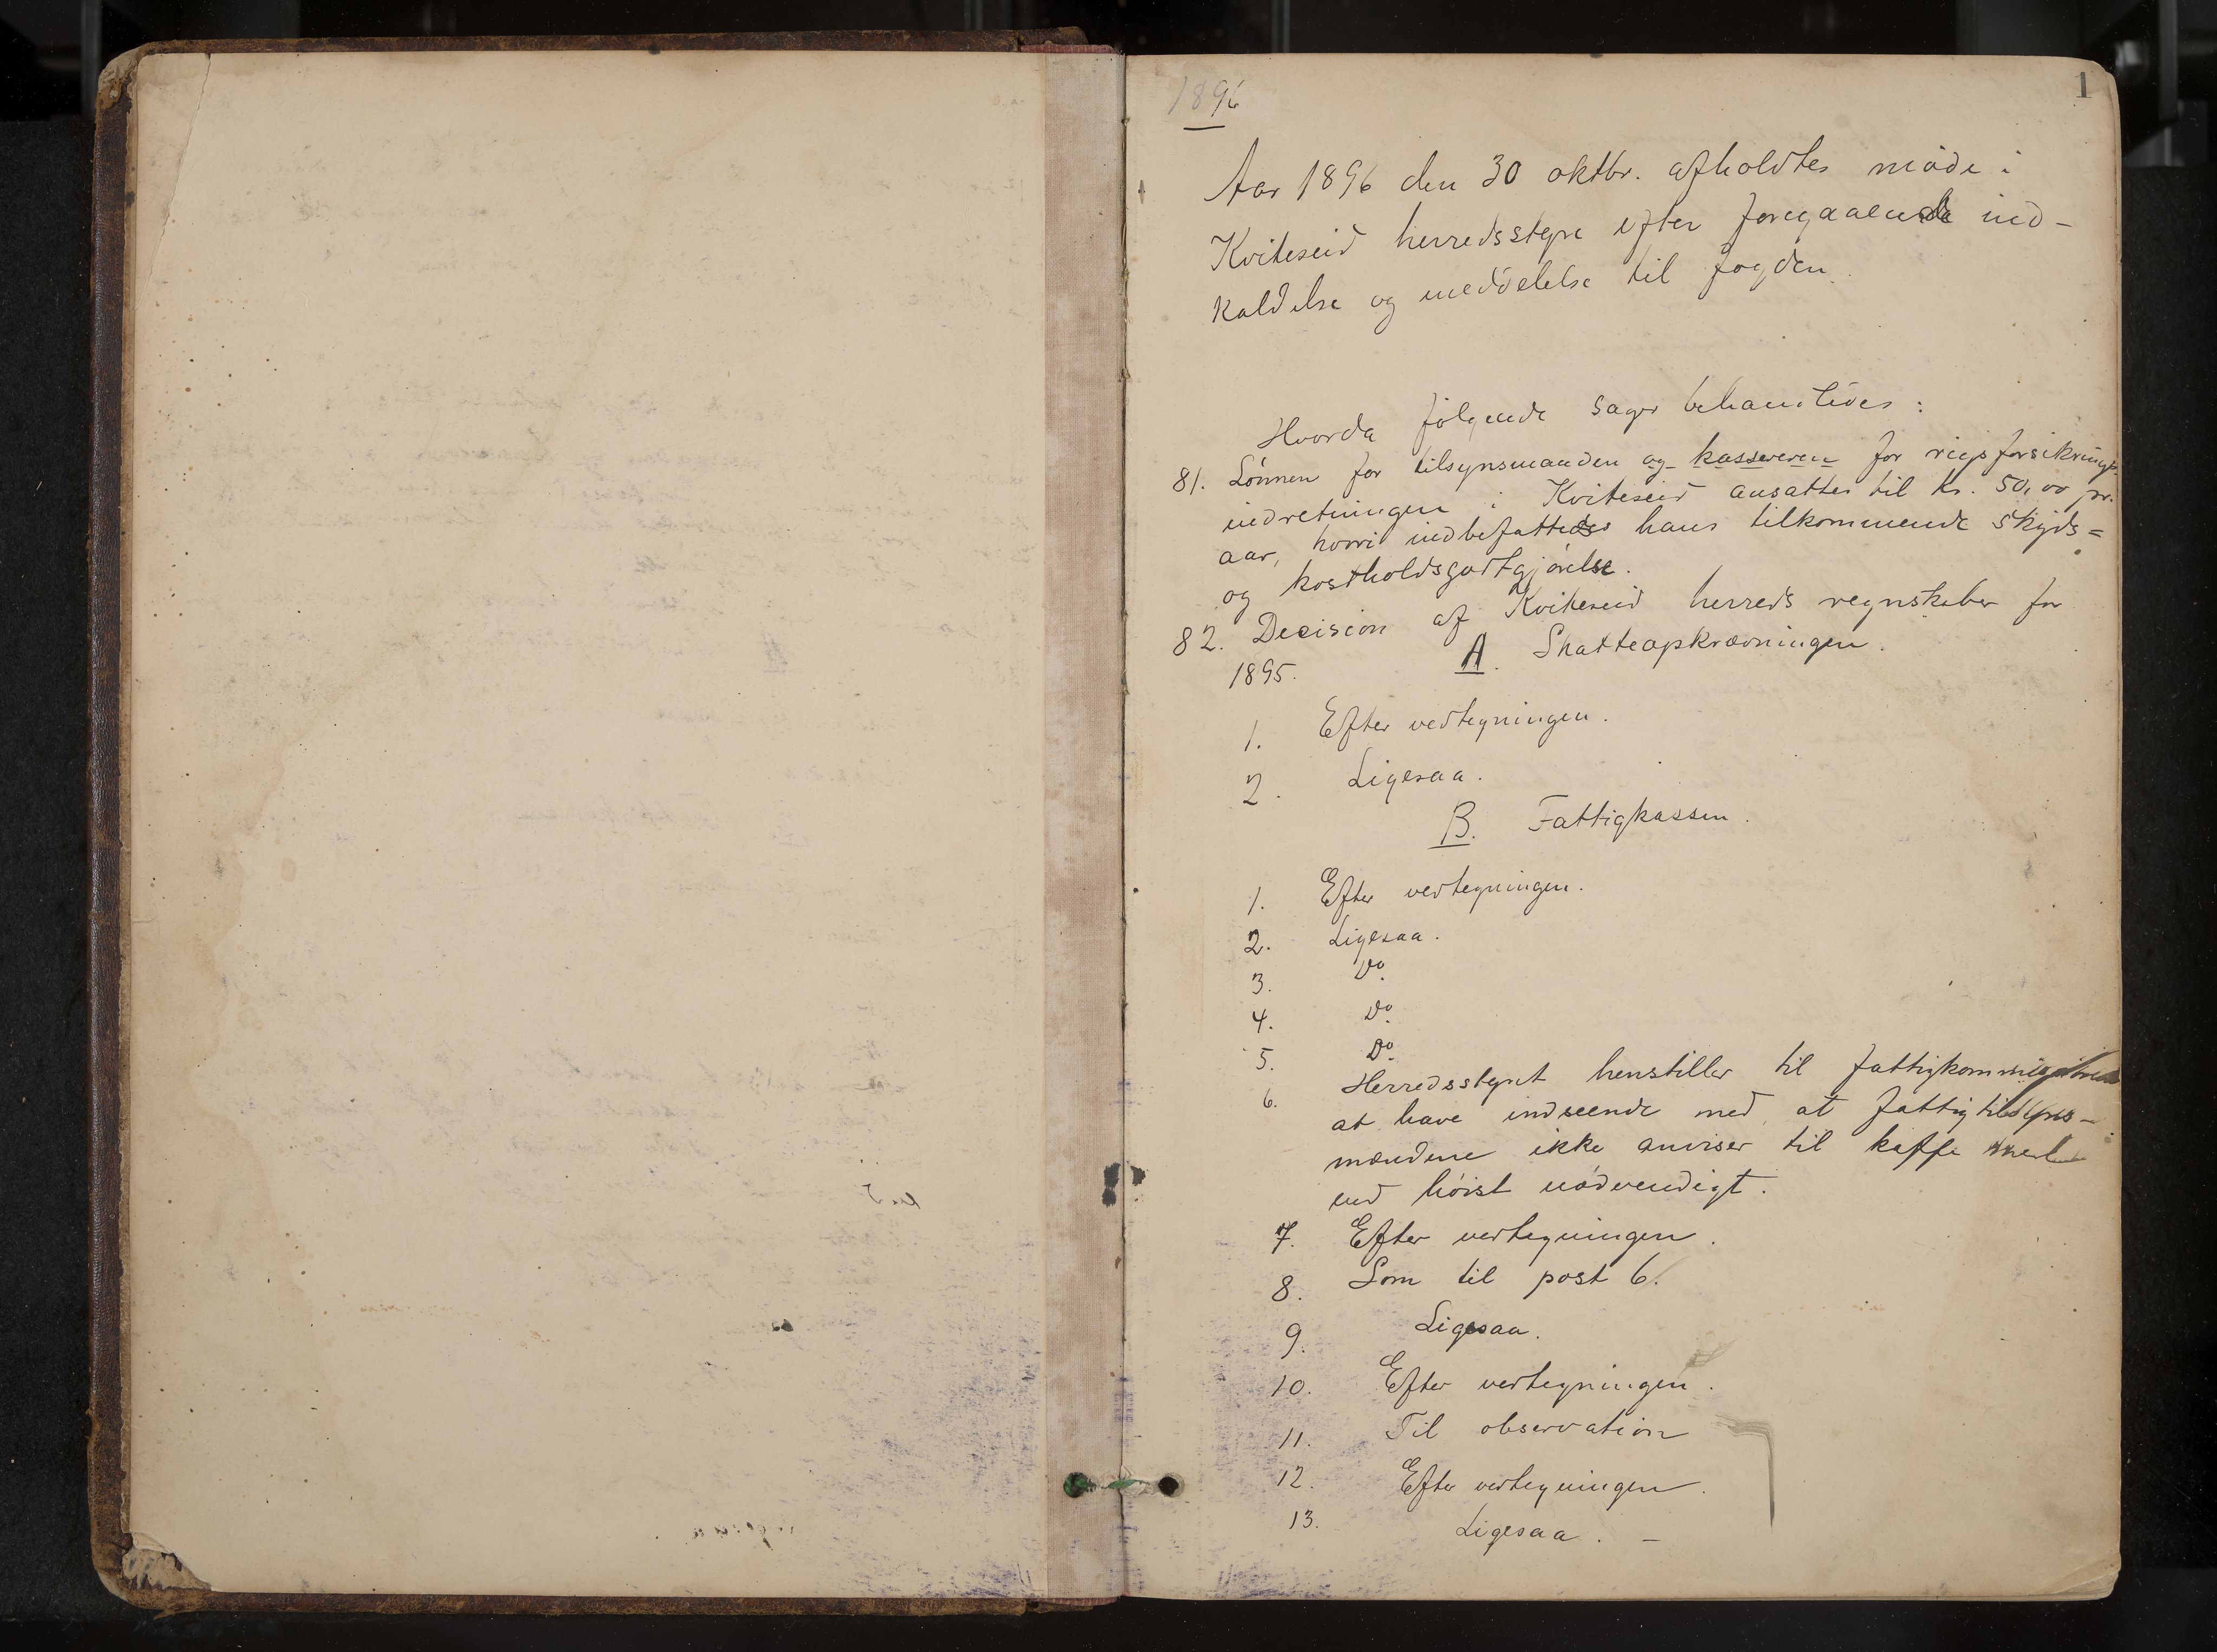 1896
1
Aar 1896 den 30 oktbr. afholdtes møde i
Kviteseid herredsstyre efter foregaaende ind-
kaldelse og meddelelse til fogden.
Hvorda følgende sager behandledes:
81. Lønnen for tilsynsmanden og kassereren for rigsforsikrings-
indretningen i Kviteseid ansattes til kr. 50,00 pr.
aar, hvori indbefattedes hans tilkommende skyds=
og kostholdsgodtgjørelse.
82. Decision af Kviteseid herreds regnskaber for
1895.
A. Skatteopkrævningen.
1. Efter vedtegningen.
2. Ligesaa.
B. Fattigkassen.
1. Efter vedtegningen.
2. Ligesaa.
3. Do.
4. Do.
5. Do.
6. Herredsstyret henstiller til fattigkommissionen
at have indseende med at fattigtilsyns-
mændene ikke anviser til kaffe mere
end høist nødvendigt.
7. Efter vedtegningen.
8. Som til post 6.
9. Ligesaa.
10. Efter vedtegningen.
11. Til observation
12. Efter vedtegningen.
13. Ligesaa. -